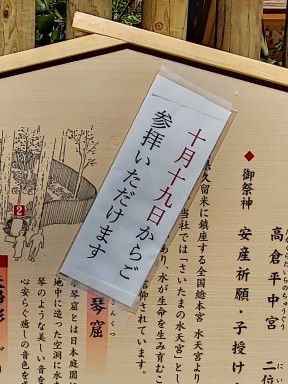 十月十九日からご
参拝いただけます
◆御祭神
高倉平中宮 二位
安産祈願・子授け
久留米に鎮座する全国総本宮 水天宮より
当社では「さいたまの水天宮」と
あり、水が生命を生み育むこ
信仰されています。
琴窟
琴窟とは日本庭園に
地中に造った空洞に水
琴のような美しい音を
心安らぐ癒しの音色を
2